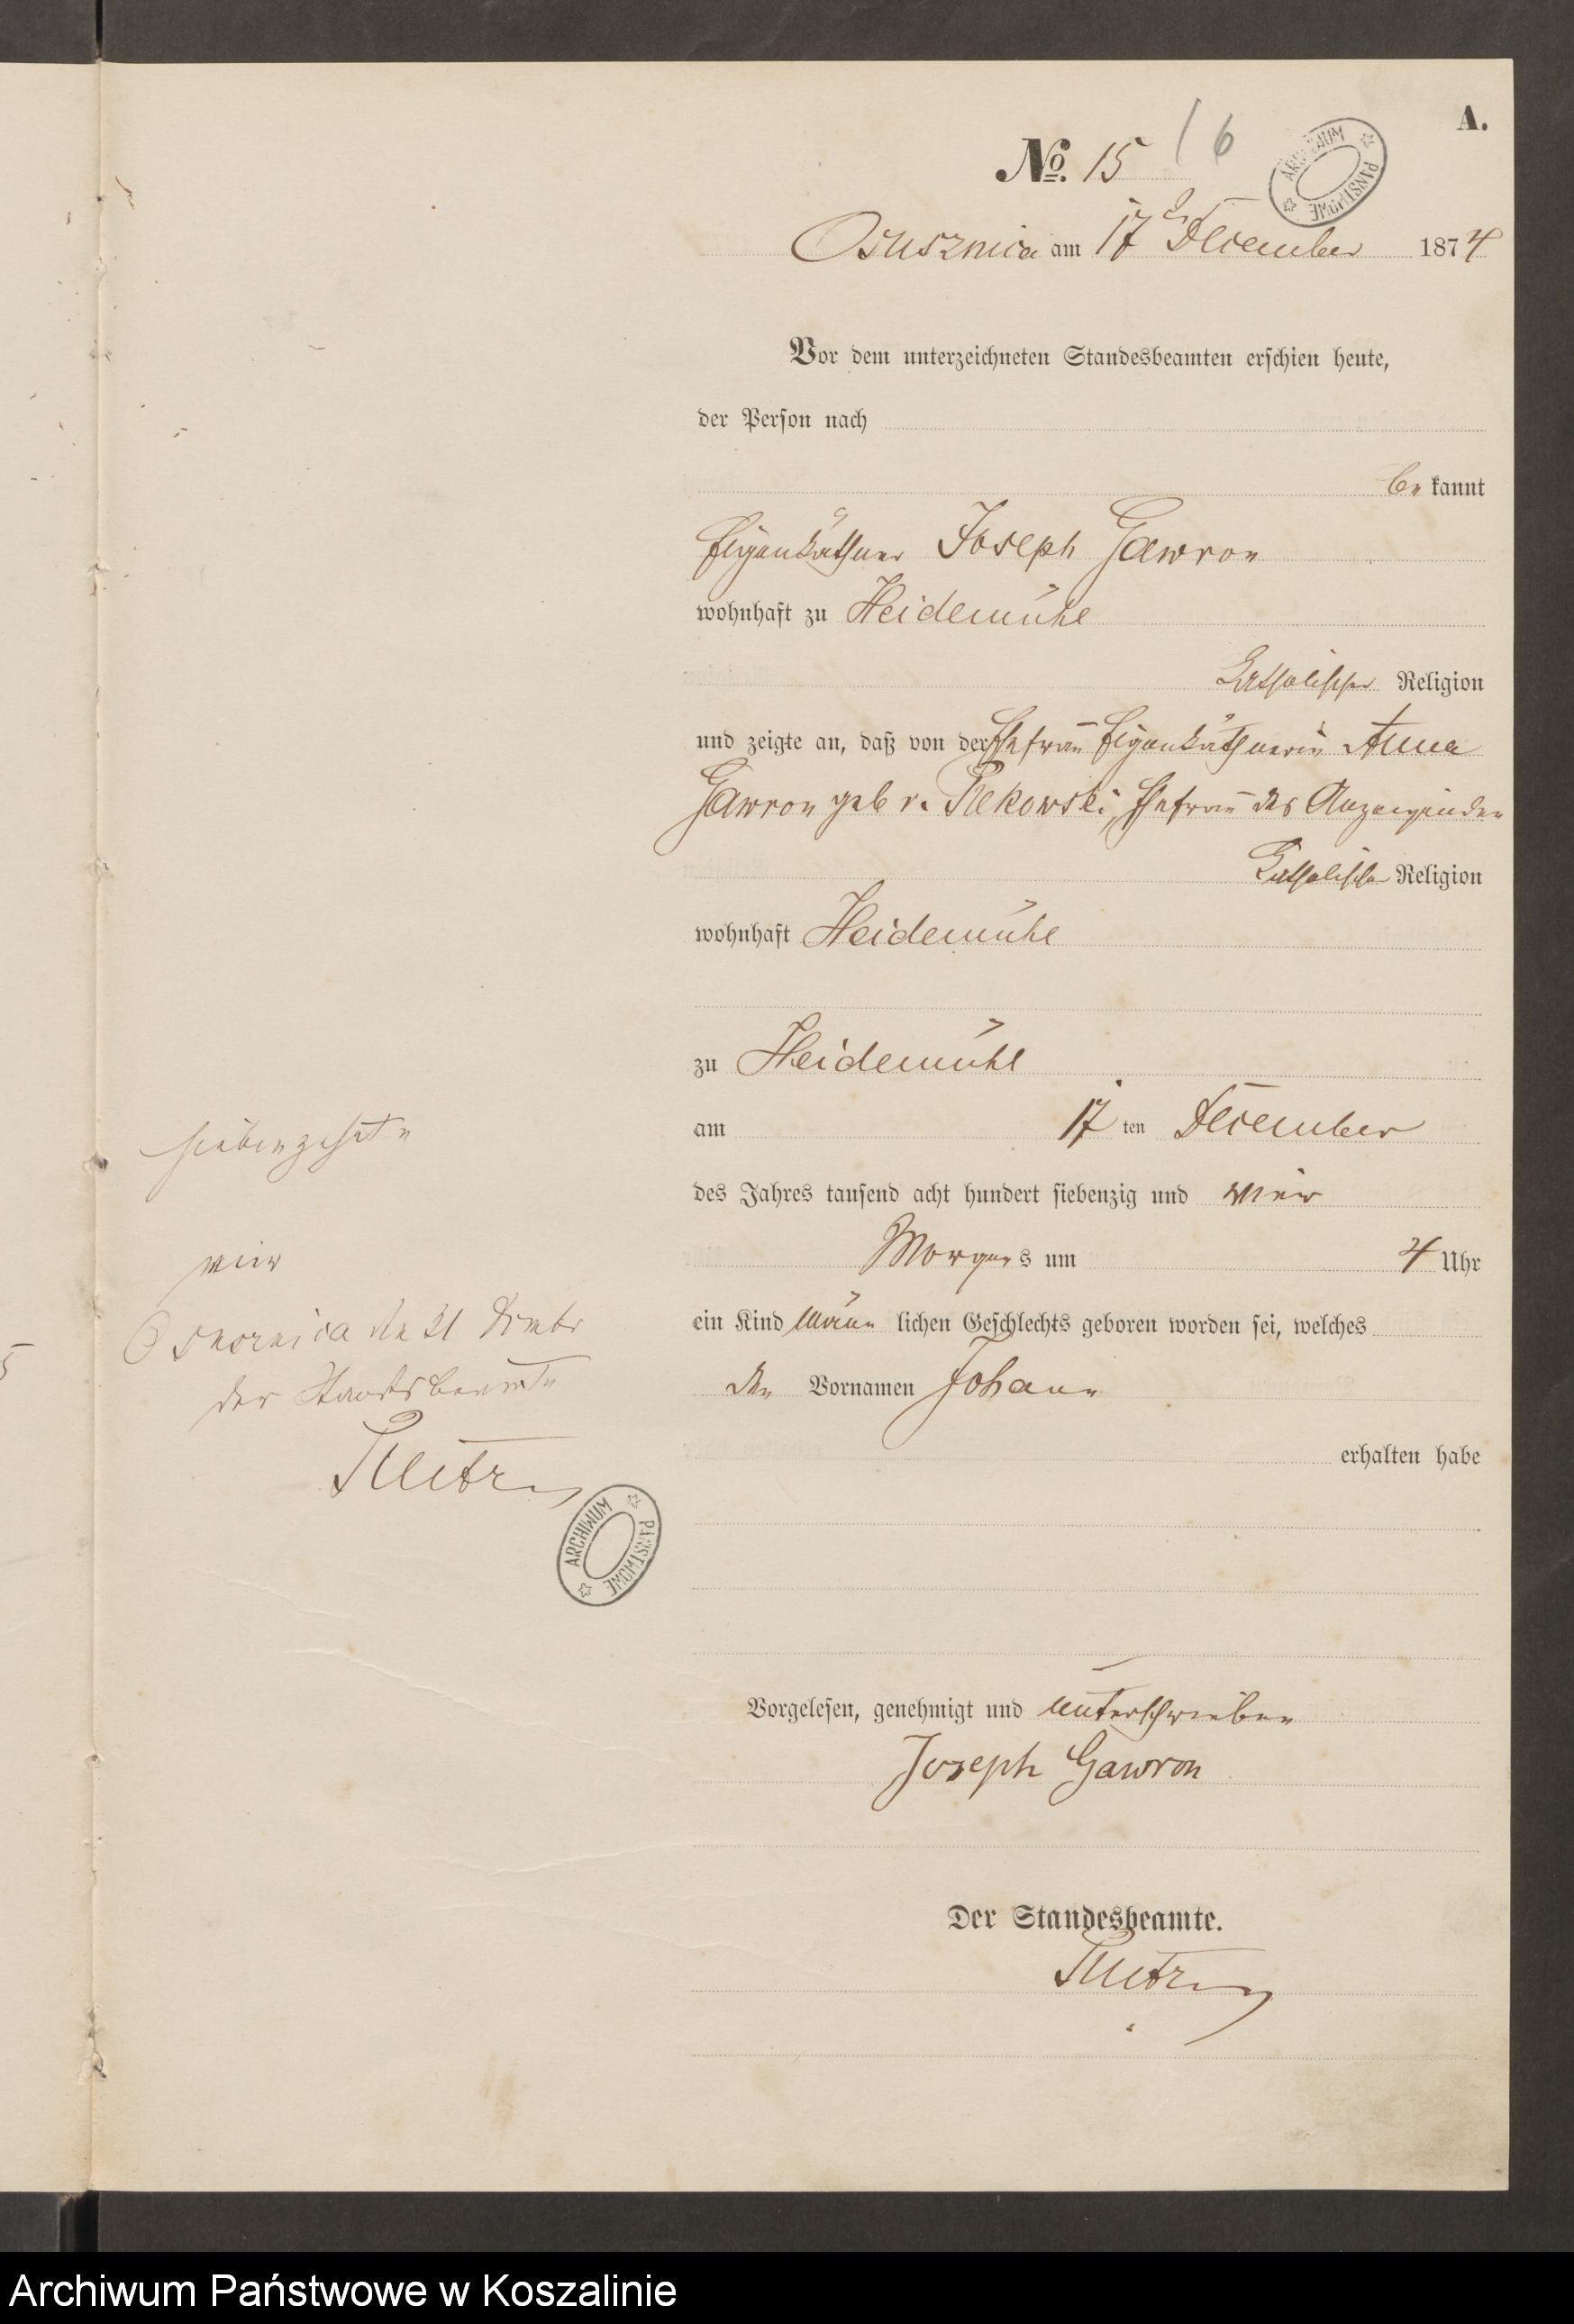 A.
No. 15
16
ARCHIWUM PAŃSTWOWE
Osusznica am 17 December 1874
Vor dem unterzeichneten Standesbeamten erschien heute,
der Person nach
be kannt
Eigenkäthner Joseph Gawron
wohnhaft zu Heidemühl
katholischer Religion
und zeigte an, daß von der Ehefrau Eigenkäthnerin Anna
Gawron geb v. Ehefrau des Anzeigenden
katholischer Religion
wohnhaft Heidemühl
zu Heidemühl
am 17 ten December
des Jahres tausend acht hundert siebenzig und vier
Morgens um 4 Uhr
ein Kind männ lichen Geschlechts geboren worden sei, welches
den Vornamen Johann
erhalten habe
Vorgelesen, genehmigt und unterschrieben
Joseph Gawron
Der Standesbeamte.
siebenzehnte
vier
den 31
der Standesbeamte
ARCHIWUM PAŃSTWOWE
5
Archiwum Państwowe w Koszalinie